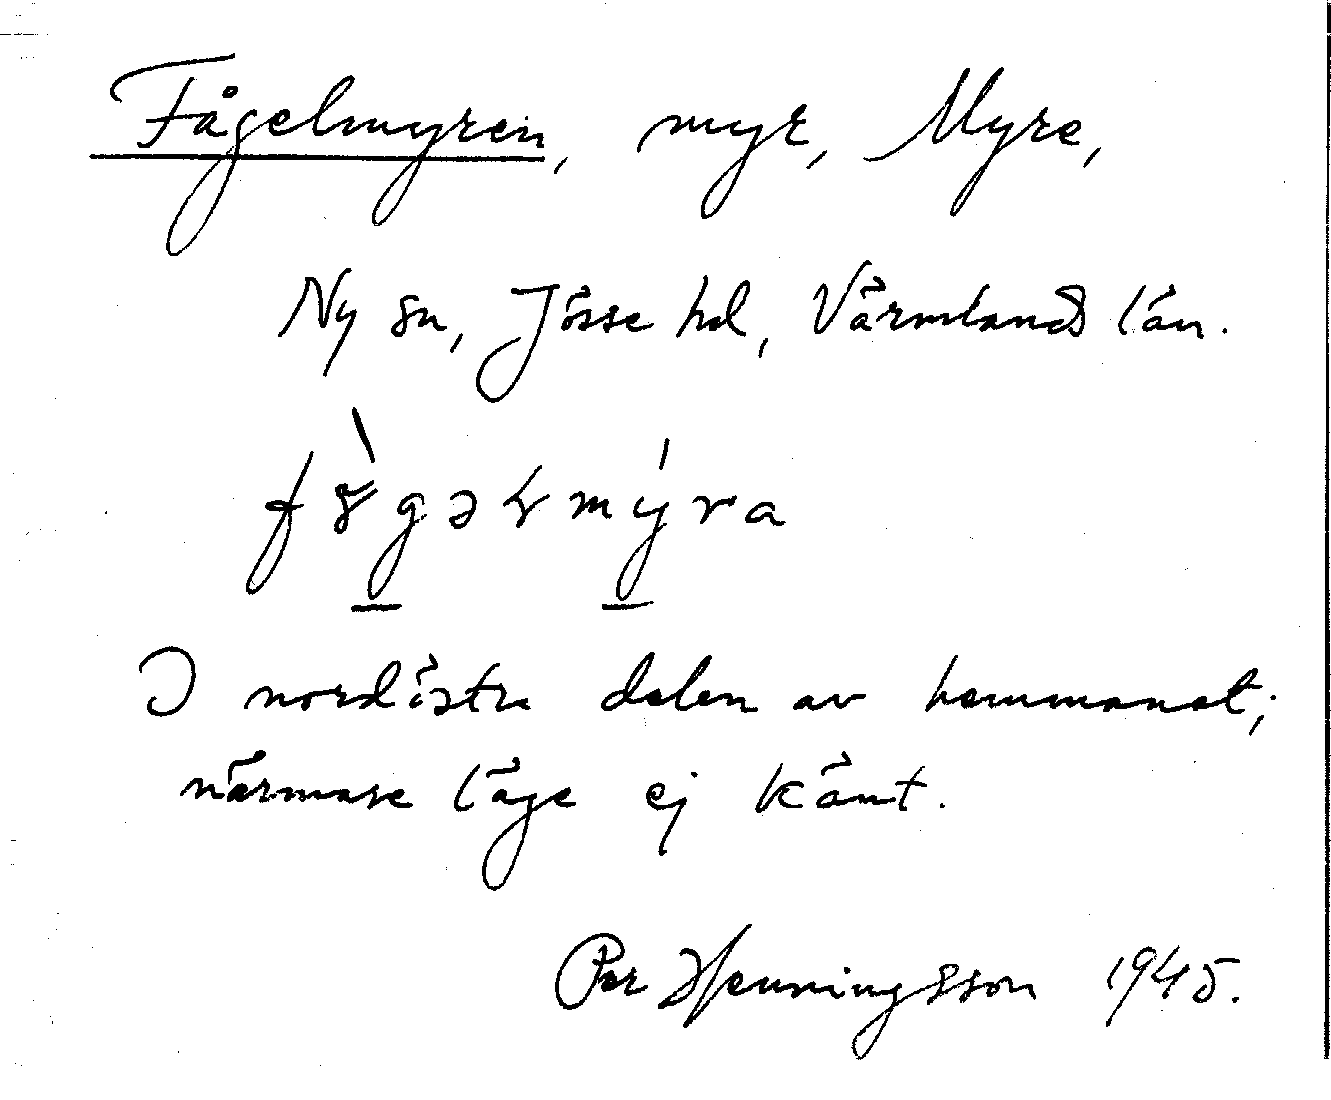 Fågelmyren, myr, Myre,
Ny sn, Jösse hd, Värmlands län.
I nordöstra delen av hemmanet;
närmare läge ej känt.
Per Henningsson 1945.